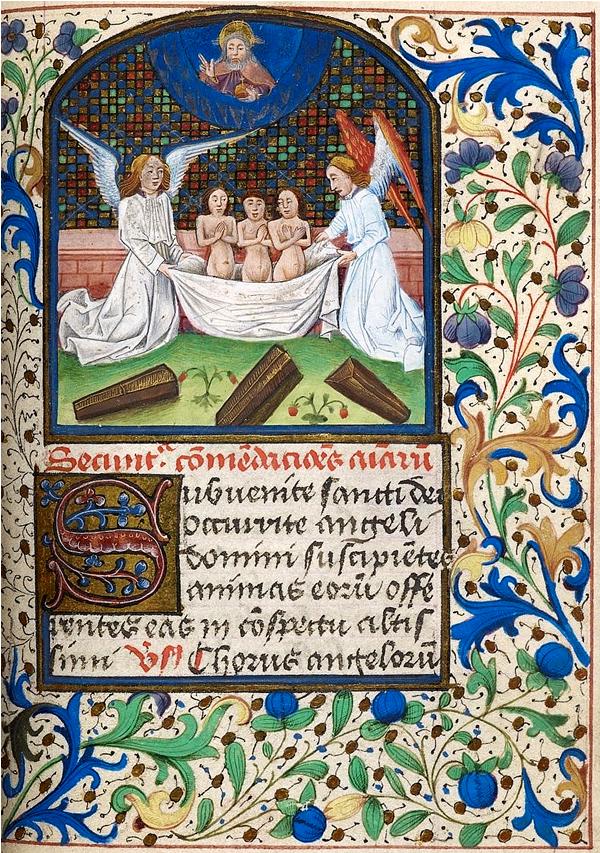 Secunt͛ cōmēdacioēs aīarū
Subuenite sancti dei
occurrite angeli
domini suscipiētes
animas eorū offe
rentes eas in cōspectu altis
simi V͛s Chorus angelorū